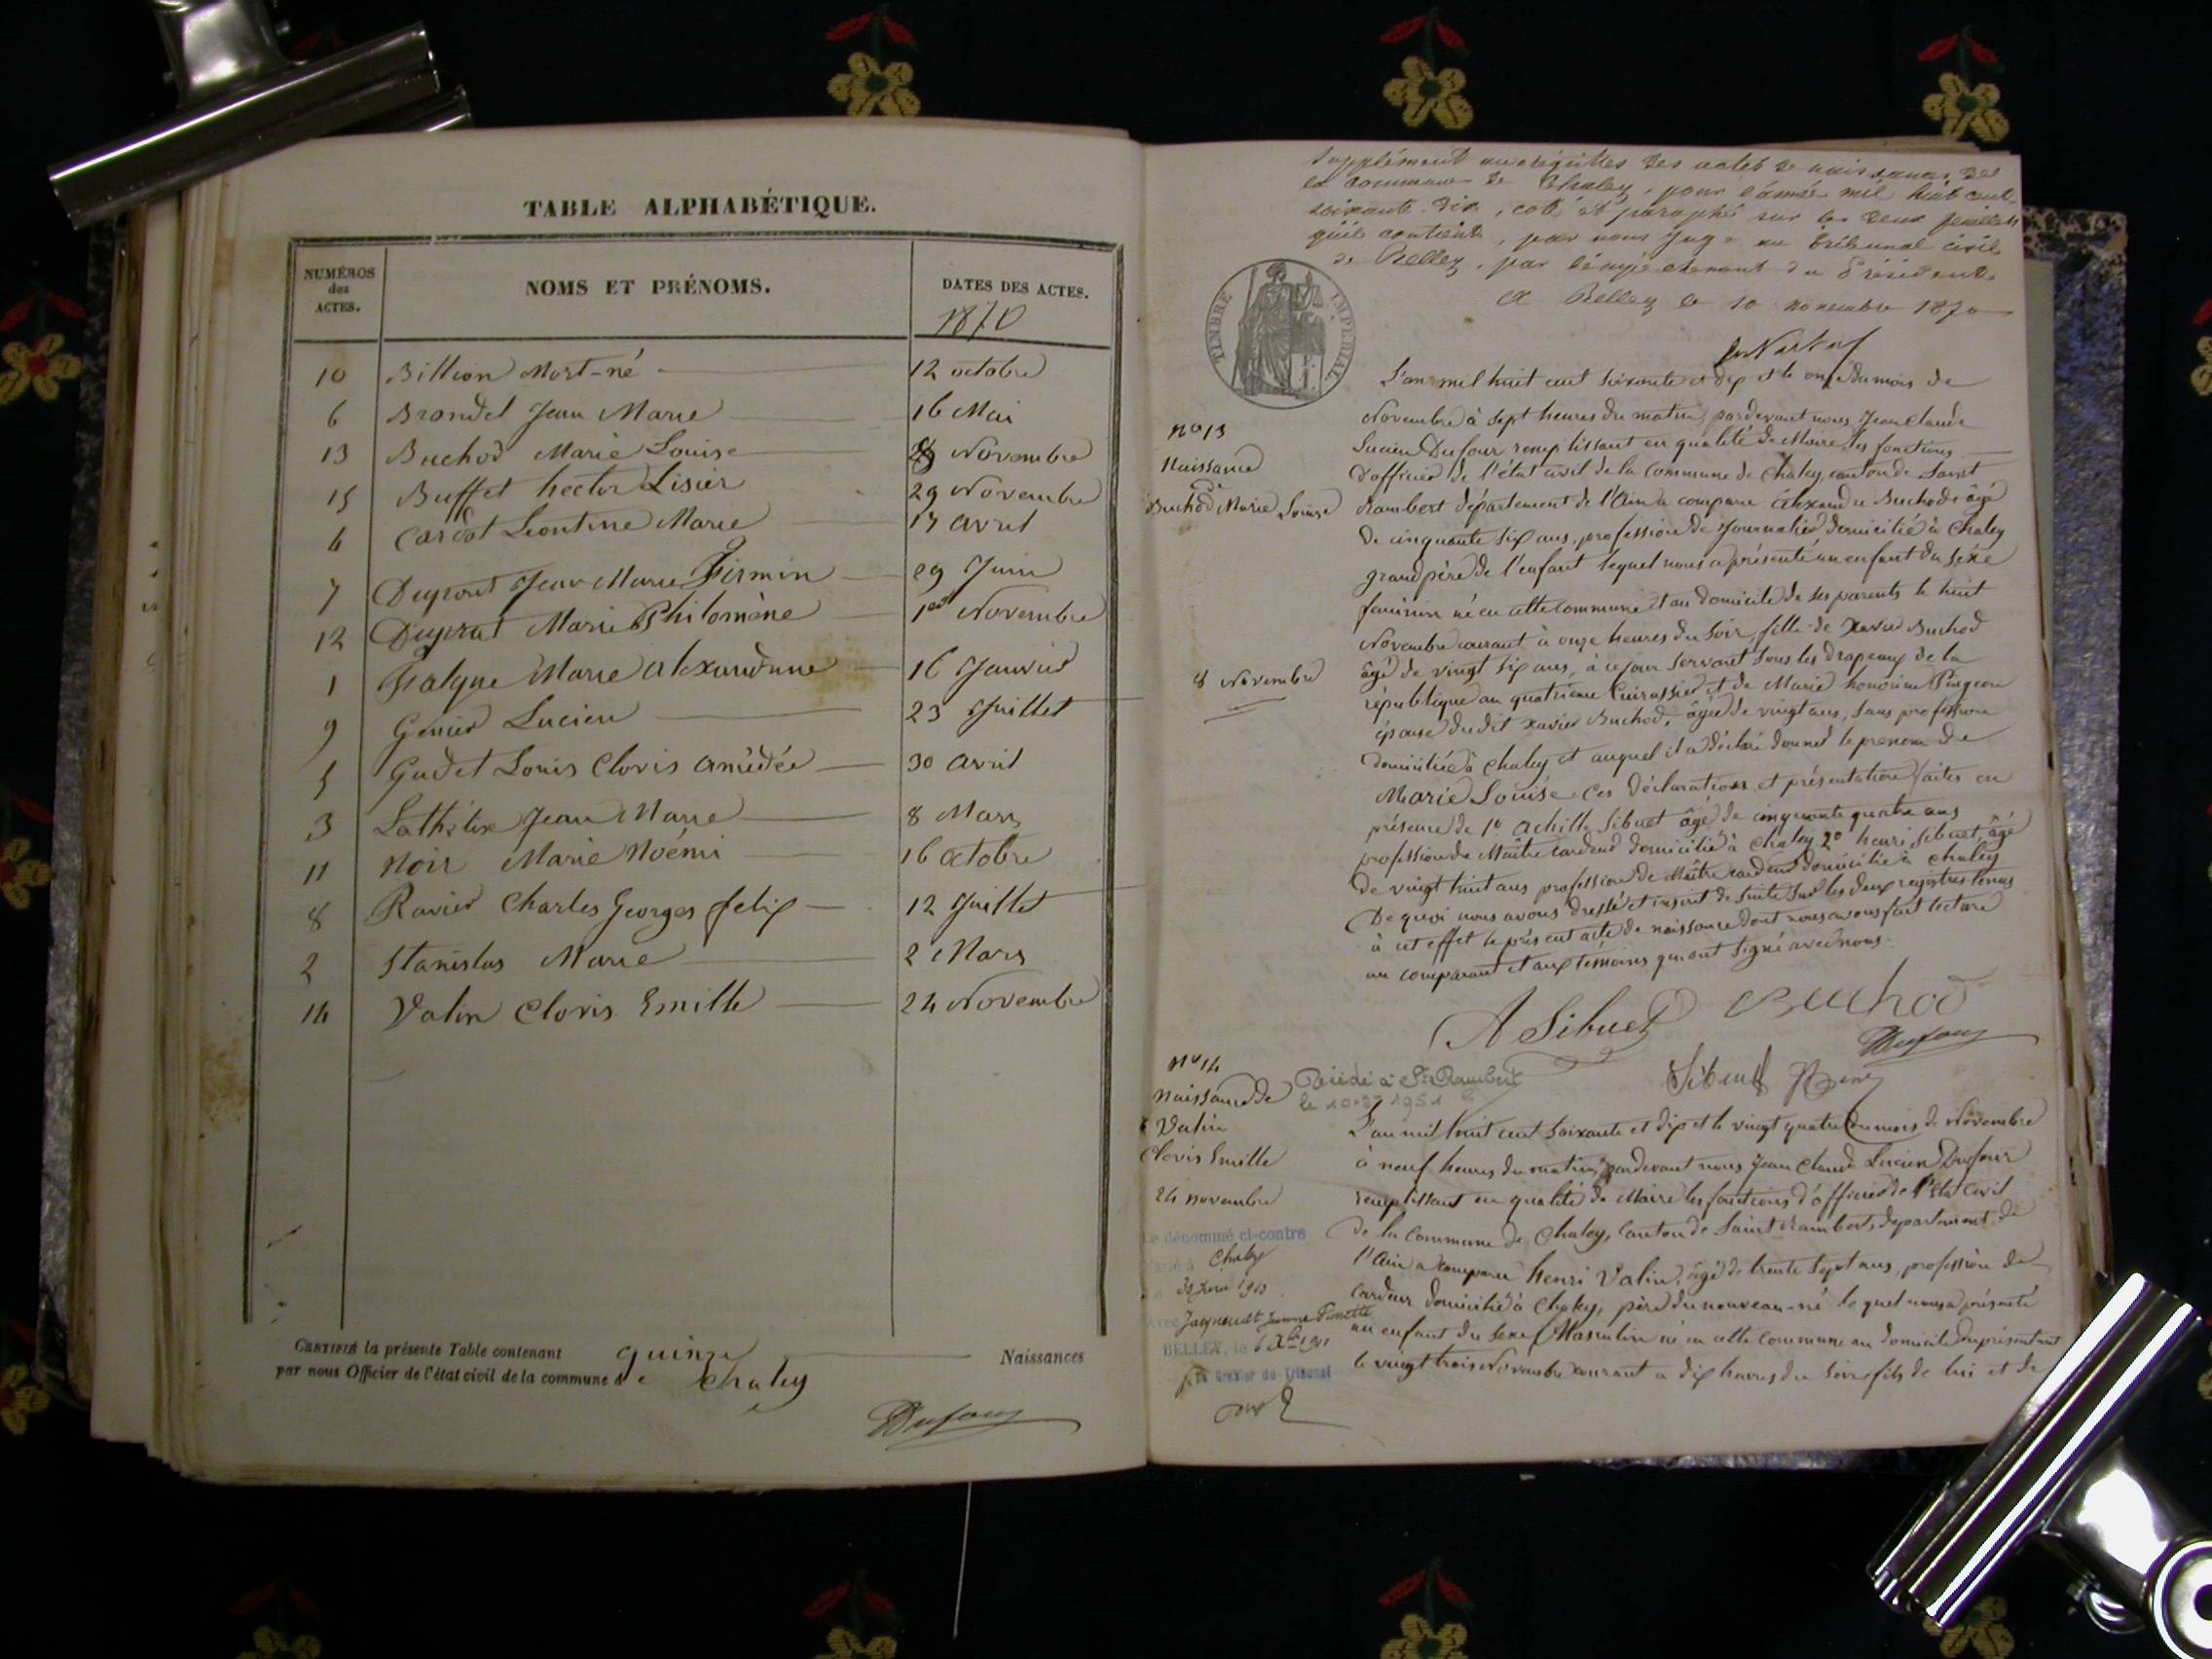 TABLE ALPHABÉTIQUE.
NUMÉROS des ACTES.
NOMS ET PRÉNOMS.
DATES DES ACTES.
1870
10 Billion Mort-né 12 octobre
6 Brondel Jean Marie 16 Mai
13 Buchod Marie Louise 8 Novembre
15 Buffet hector Lisier 29 Novembre
4 Cardot Leontine Marie 13 avril
7 Duprat Jean Marie Firmin 29 Juin
12 Duprat Marie Philomène 1er Novembre
1 Marie alexandrine 16 Janvier
9 Genier Lucien 23 Juillet
5 Gudet Louis Clovis amédée 30 avril
3 Jean Marie 8 Mars
11 Noir Marie Noémi 16 octobre
8 Ravier Charles Georges felix 12 Juillet
2 Stanislas Marie 2 Mars
14 Valin Clovis Emille 24 Novembre
CERTIFIÉ la présente Table contenant quinze Naissances
par nous Officier de l'état civil de la commune de Chaley
Dufour
Supplément aux registres des actes de naissances de
la commune de Chaley, pour l'année mil huit cent
soixante-dix, coté et paraphé sur les deux feuillets
qu'il contient, par nous Juge au tribunal civil
de Belley, par l'empêchement du Président.
A Belley le 10 novembre 1870
TIMBRE IMPÉRIAL
No 13
Naissance
de
Buchod Marie Louise
8 Novembre
L'an mil huit cent soixante et dix et le onze du mois de
Novembre à sept heures du matin, pardevant nous Jean Claude
Lucien Dufour remplissant en qualité de Maire les fonctions
d'officier de l'état civil de la Commune de Chaley, canton de Saint
Rambert département de l'Ain a comparu Alexandre Buchod âgé
de cinquante six ans, profession de Journalier domicilié à Chaley
grand père de l'enfant lequel nous a présenté un enfant du sexe
féminin né en cette commune et au domicile de ses parents le huit
Novembre courant à onze heures du soir, fille de Xavier Buchod
âgé de vingt six ans, à ce jour servant sous les drapeaux de la
république au quatrième Cuirassier et de Marie honorine Pingeon
épouse dudit Xavier Buchod, âgée de vingt ans, sans profession
domiciliée à Chaley et auquel il a déclaré donner le prénom de
Marie Louise Ces déclaration et présentation faites en
présence de 1o Achille Sibuet âgé de cinquante quatre ans
profession de Maître cardeur domicilié à Chaley 2o henri Sibuet, âgé
de vingt huit ans profession de Maître cardeur domicilié à Chaley
De quoi nous avons dressé et inscrit de suite sur les deux registres tenus
à cet effet le présent acte de naissance dont nous avons fait lecture
au comparant et aux témoins qui ont signé avec nous.
A Sibuet Buchod
Dufour
Sibuet
No 14
Naissance de
Valin
Clovis Emille
24 novembre
Décédé à St Rambert
le 10 1951
Le dénommé ci-contre
Chaley
1903
Jacquemet Jeanne
BELLEY, le 6
Le Greffier du Tribunal
L'an mil huit cent soixante et dix et le vingt quatre du mois de Novembre
à neuf heures du matin, pardevant nous Jean Claude Lucien Dufour
remplissant en qualité de Maire les fonctions d'officier de l'état civil
de la Commune de Chaley, Canton de Saint Rambert, département de
l'Ain a comparu henri Valin, âgé de trente sept ans, profession de
Cardeur domicilié à Chaley, père du nouveau-né lequel nous a présenté
un enfant du sexe Masculin né en cette commune au domicile du présentant
le vingt trois Novembre courant a dix heures du soir fils de lui et de